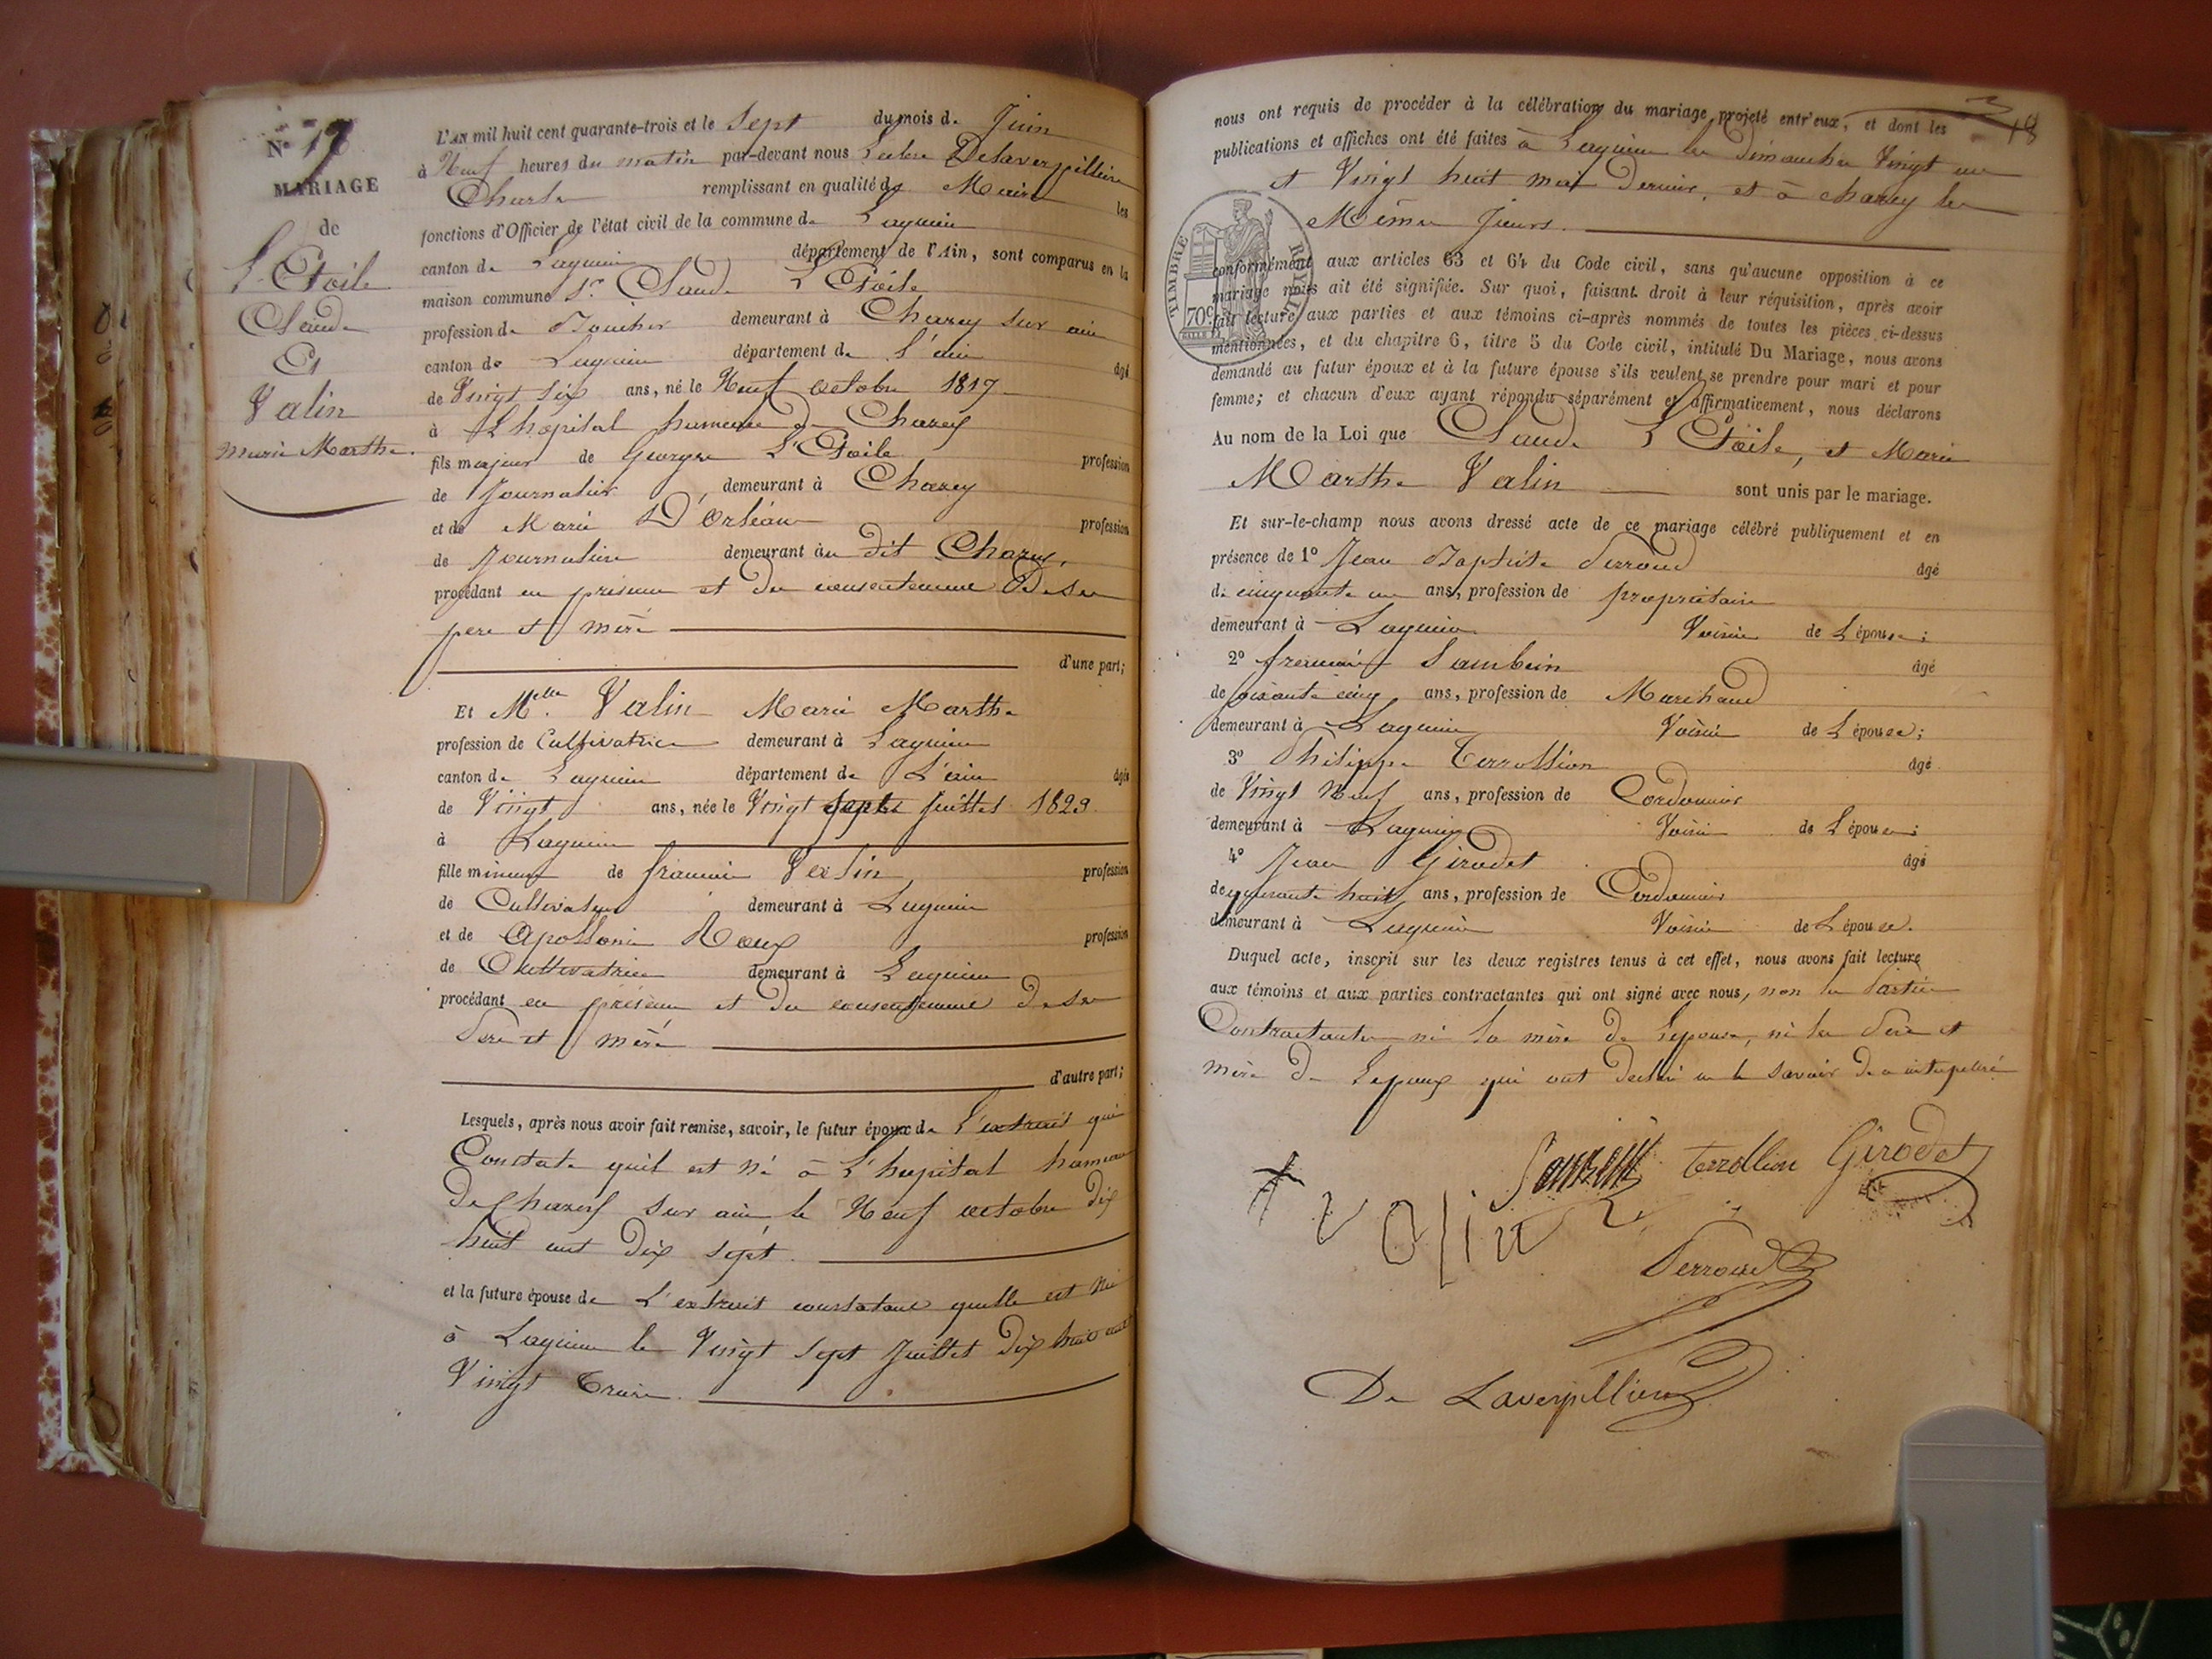 N° 17
MARIAGE
de
L'Etoile
Claude
Et
Valin
marie Marthe.
L'AN mil huit cent quarante-trois et le Sept du mois de Juin
à Neuf heures du matin par-devant nous Delaverpilliere
Charles remplissant en qualité de Maire les
fonctions d'Officier de l'état civil de la commune de Lagnieu
canton de Lagnieu département de l'Ain, sont comparus en la
maison commune Sr. Claude L'Etoile
profession de Boucher demeurant à Charey sur ain
canton de Lagnieu département de L'ain âgé
de Vingt six ans, né le Neuf octobre 1817
à L'hopital hameau de Charey
fils majeur de George L'Etoile profession
de Journalier demeurant à Charey
et de Marie D'Orléans profession
de Journalière demeurant au dit Charey,
procédant en présence et du consentement De ses
pere et mère
d'une part;
Et Melle. Valin Marie Marthe
profession de Cultivatrice demeurant à Lagnieu
canton de Lagnieu département de L'ain âgée
de Vingt ans, née le Vingt Sept Juillet 1823
à Lagnieu
fille mineure de francois Valin profession
de Cultivateur demeurant à Lagnieu
et de Apollonie Roux profession
de Cultivatrice demeurant à Lagnieu
procédant en présence et du consentement de ses
Père et mère
d'autre part;
Lesquels, après nous avoir fait remise, savoir, le futur époux de L'extrait qui
Constate quil est né à L'hopital hameau
De Charey sur ain le Neuf octobre dix
huit cent dix sept.
et la future épouse de L'extrait constatant quelle est née
à Lagnieu le Vingt sept Juillet dix huit cent
Vingt Trois.
18
nous ont requis de procéder à la célébration du mariage projeté entr'eux, et dont les
publications et affiches ont été faites à Lagnieu les Dimanches Vingt un
et Vingt huit mai Dernier, et à charey les
Mêmes Jours.
TIMBRE ROYAL
70c
conformément aux articles 63 et 64 du Code civil, sans qu'aucune opposition à ce
mariage nous ait été signifiée. Sur quoi, faisant droit à leur réquisition, après avoir
fait lecture aux parties et aux témoins ci-après nommés de toutes les pièces ci-dessus
mentionnées, et du chapitre 6, titre 5 du Code civil, intitulé Du Mariage, nous avons
demandé au futur époux et à la future épouse s'ils veulent se prendre pour mari et pour
femme; et chacun d'eux ayant répondu séparément et affirmativement, nous déclarons
Au nom de la Loi que Claude L'Etoile, et Marie
Marthe Valin sont unis par le mariage.
Et sur-le-champ nous avons dressé acte de ce mariage célébré publiquement et en
présence de 1° Jean Baptiste Perroud âgé
de cinquante un ans, profession de propriétaire
demeurant à Lagnieu Voisin de L'épouse;
2° francois Sambein âgé
de soixante cinq ans, profession de Marchand
demeurant à Lagnieu Voisin de L'épouse;
3° Philippe Terrollion âgé
de Vingt Neuf ans, profession de Cordonnier
demeurant à Lagnieu Voisin de L'épouse;
4° Jean Girodet âgé
de quarante huit ans, profession de Cordonnier
demeurant à Lagnieu Voisin de L'épouse.
Duquel acte, inscrit sur les deux registres tenus à cet effet, nous avons fait lecture
aux témoins et aux parties contractantes qui ont signé avec nous, non les Parties
Contractantes ni la mère de L'epouse, ni les Père et
mère de L'epoux qui ont déclaré ne le savoir de ce interpellés
Terrollion Girodet
valin
Perroud
De Laverpilliere